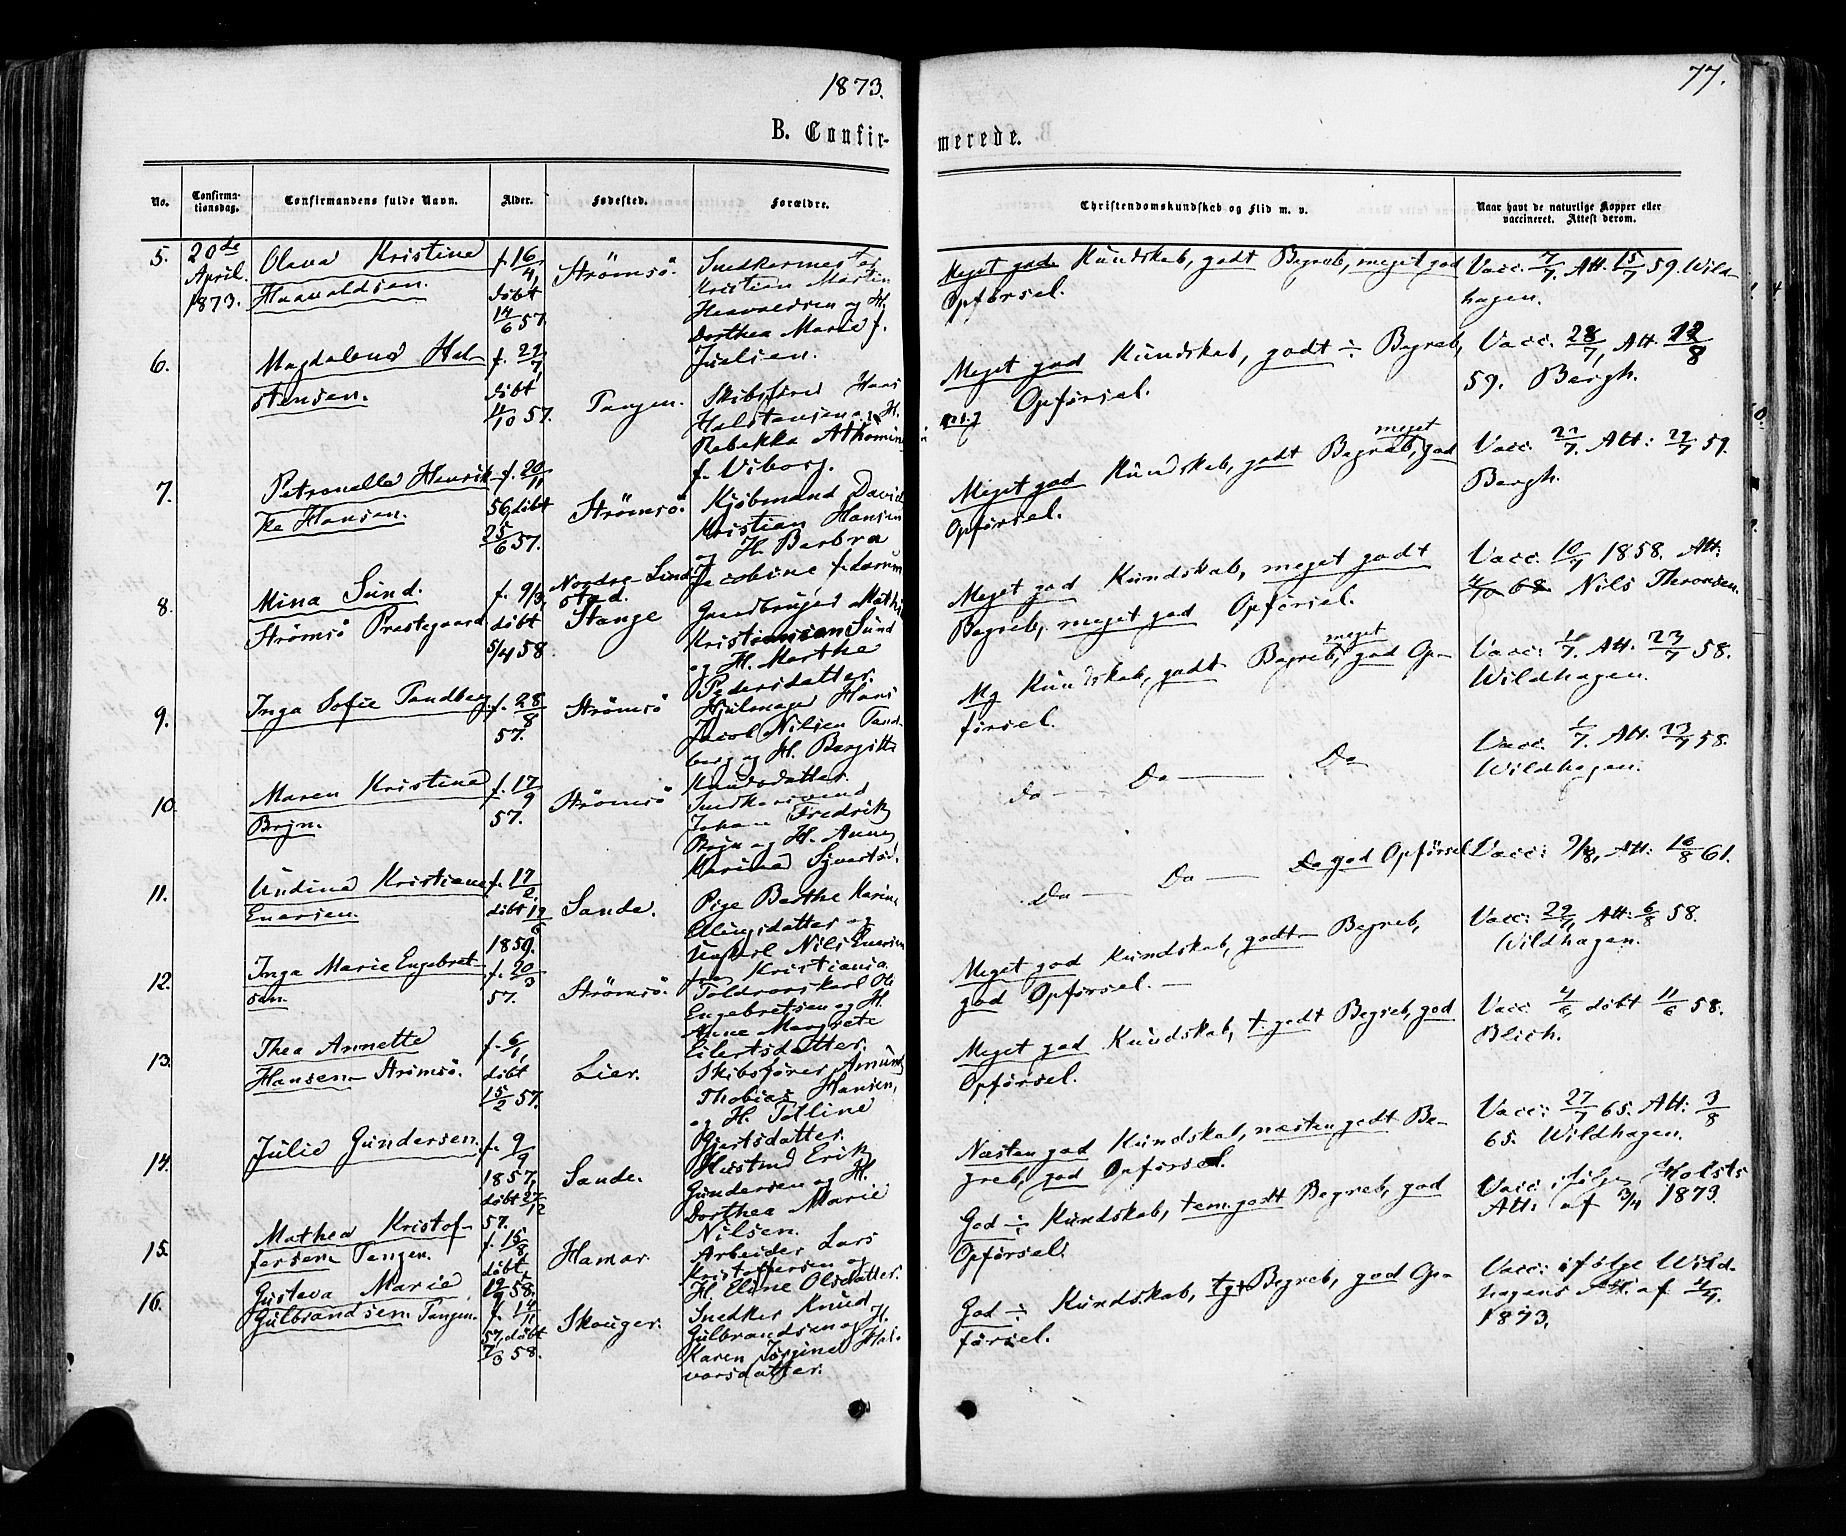 1873.
77.
B. Confir-
merede.
No.
Confirma-
tionsdag.
Confirmandens fulde Navn.
Alder.
Fødested.
Forældre.
Christendomskundskab og Flid m. v.
Naar havt de naturlige Kopper eller
vaccineret. Attest derom.
5.
20de
April
1873.
Olava Kristine
Haavaldsen.
f. 16/4,
døbt
14/6 57.
Strömsö.
Snedkermester
Kristian Martin
Haavaldsen og H.
Dorthea Marie f.
Juelsen.
Meget god Kundskab, godt Begreb, meget god
Opførsel.
Vacc. 7/7. Att. 15/7 59. Wild-
hagen.
6.
Magdalena Hal-
stensen.
døbt
11/10 57.
Tangen.
Skibsfører Hans
Halstensen og H.
Rebekka
f. Viborg.
Meget god Kundskab, godt ÷ Begreb,
Opførsel.
Vacc. 28/7, Att.
59. Bergh.
7.
Petronelle Henrik-
ke Hansen.
f. 20/11
56, døbt
25/6 57.
Strömsö.
Kjøbmand David
Kristian Hansen
og H. Barbra
Jacobine f.
Meget god Kundskab, godt Begreb, meget god
Opførsel.
Vacc. Att: 59.
Bergh.
8.
Mina Sund.
Strömsö Prestegaard
f. 9/3,
døbt
5/4 58.
Nordre-Sund-
stad.
Stange
Gaardbruger
Kristiansen Sund
og H. Marthe
Pedersdatter.
Meget god Kundskab, meget godt
Begreb, meget god Opførsel.
Vacc. 10/7 1858. Att:
68. Nils
9.
Inga Sofie Tandberg
f. 28/8
57.
Strömsö
Hjulmager Hans
Jacob Nilsen Tand-
berg og H. Bergitte
Knudsdatter.
Mg Kundskab, godt Begreb, meget god Op-
førsel.
Vacc. 1/7. Att. 23/7 58.
Wildhagen.
10.
Maren Kristine
Brÿn.
f. 17/9
57.
Strömsö
Snedkersvend
Johan Fredrik
Brÿn og H. Anne
Marina
Do — Do — Do
Vacc. 1/7. Att. 23/7 58.
Wildhagen.
11.
Undina Kristiane
Enersen.
f. 17/2
døbt 19/6
1859.
Sande.
Pige Berthe Karine
og
Nils Enersen
fra Kristiania.
Do — Do — god Opførsel
Vacc: 9/8, Att: 10/8 61.
12.
Inga Marie Engebret-
sen.
f. 20/3
57.
Strömsö.
Ole
Engebretsen og H.
Anne Margrete
Eilertsdatter.
Meget god Kundskab, godt Begreb,
god Opførsel.
Vacc: 29/7, Att: 6/8 58.
Wildhagen.
13.
Thea Annette
Hansen Strömsö.
f. 6/1,
døbt
15/2 57.
Lier.
Skibsfører Amund
Thobias Hansen,
og H. Tolline
Gjertsdatter.
Meget god Kundskab, t. godt Begreb, god
Opførsel.
Vacc 4/6, døbt 11/6 58.
Blich.
14.
Julie Gundersen.
f. 9/9
1857,
døbt 27/12
57.
Sande.
Husmd Erik
Gundersen og H.
Dorthea Marie
Nilsen.
Næsten god Kundskab, næsten godt Be-
greb, god Opførsel.
Vacc: 27/7 65. Att: 3/8
65. Wildhagen.
15.
Mathea Kristof-
fersen Tangen.
f. 15/8,
døbt
19/9 58.
Hamar.
Arbeider Lars
Kristoffersen og
H. Eline Olsdatter.
God ÷ Kundskab, tem. godt Begreb, god
Opførsel.
Vacc. ifølge Holsts
Att: af 3/4 1873.
16.
Gustava Marie
Gulbrandsen Tangen.
f. 14/11
57, døbt
7/3 58.
Skouger.
Snedker Knud
Gulbrandsen og H.
Karen Jørgine Hal-
vorsdatter.
God ÷ Kundskab, tgt Begreb, god Op-
førsel.
Vacc: ifølge Wild-
hagens Att. af
1873.